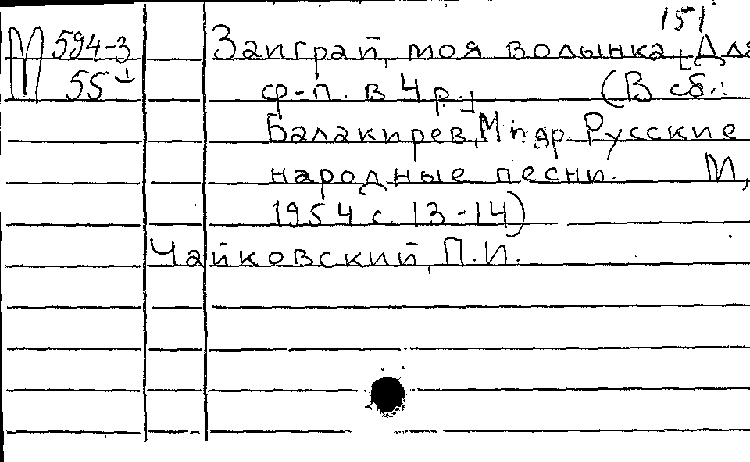 151
М 594-3 Заиграй, моя волынка [Для
55 ф-п. в 4 р.] (В сб.:
Балакирев, М и др. Русские
народные песни. М,
1954 с. 13-14)
Чайковский, П.И.